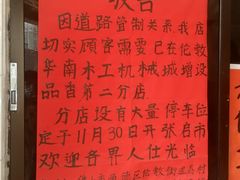 告
因道路管制关系,我店
切实顾客需要已在伦教
华南木工机械城增设
品自第二分店.
分店设有大量停车位
定于11月30日开张启市
欢迎各界人仕光临